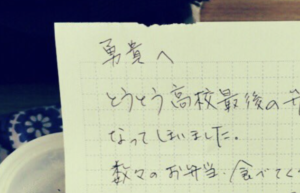 勇貴へ
とうとう高校最後の
なってしまいました。
数々のお弁当、食べてく